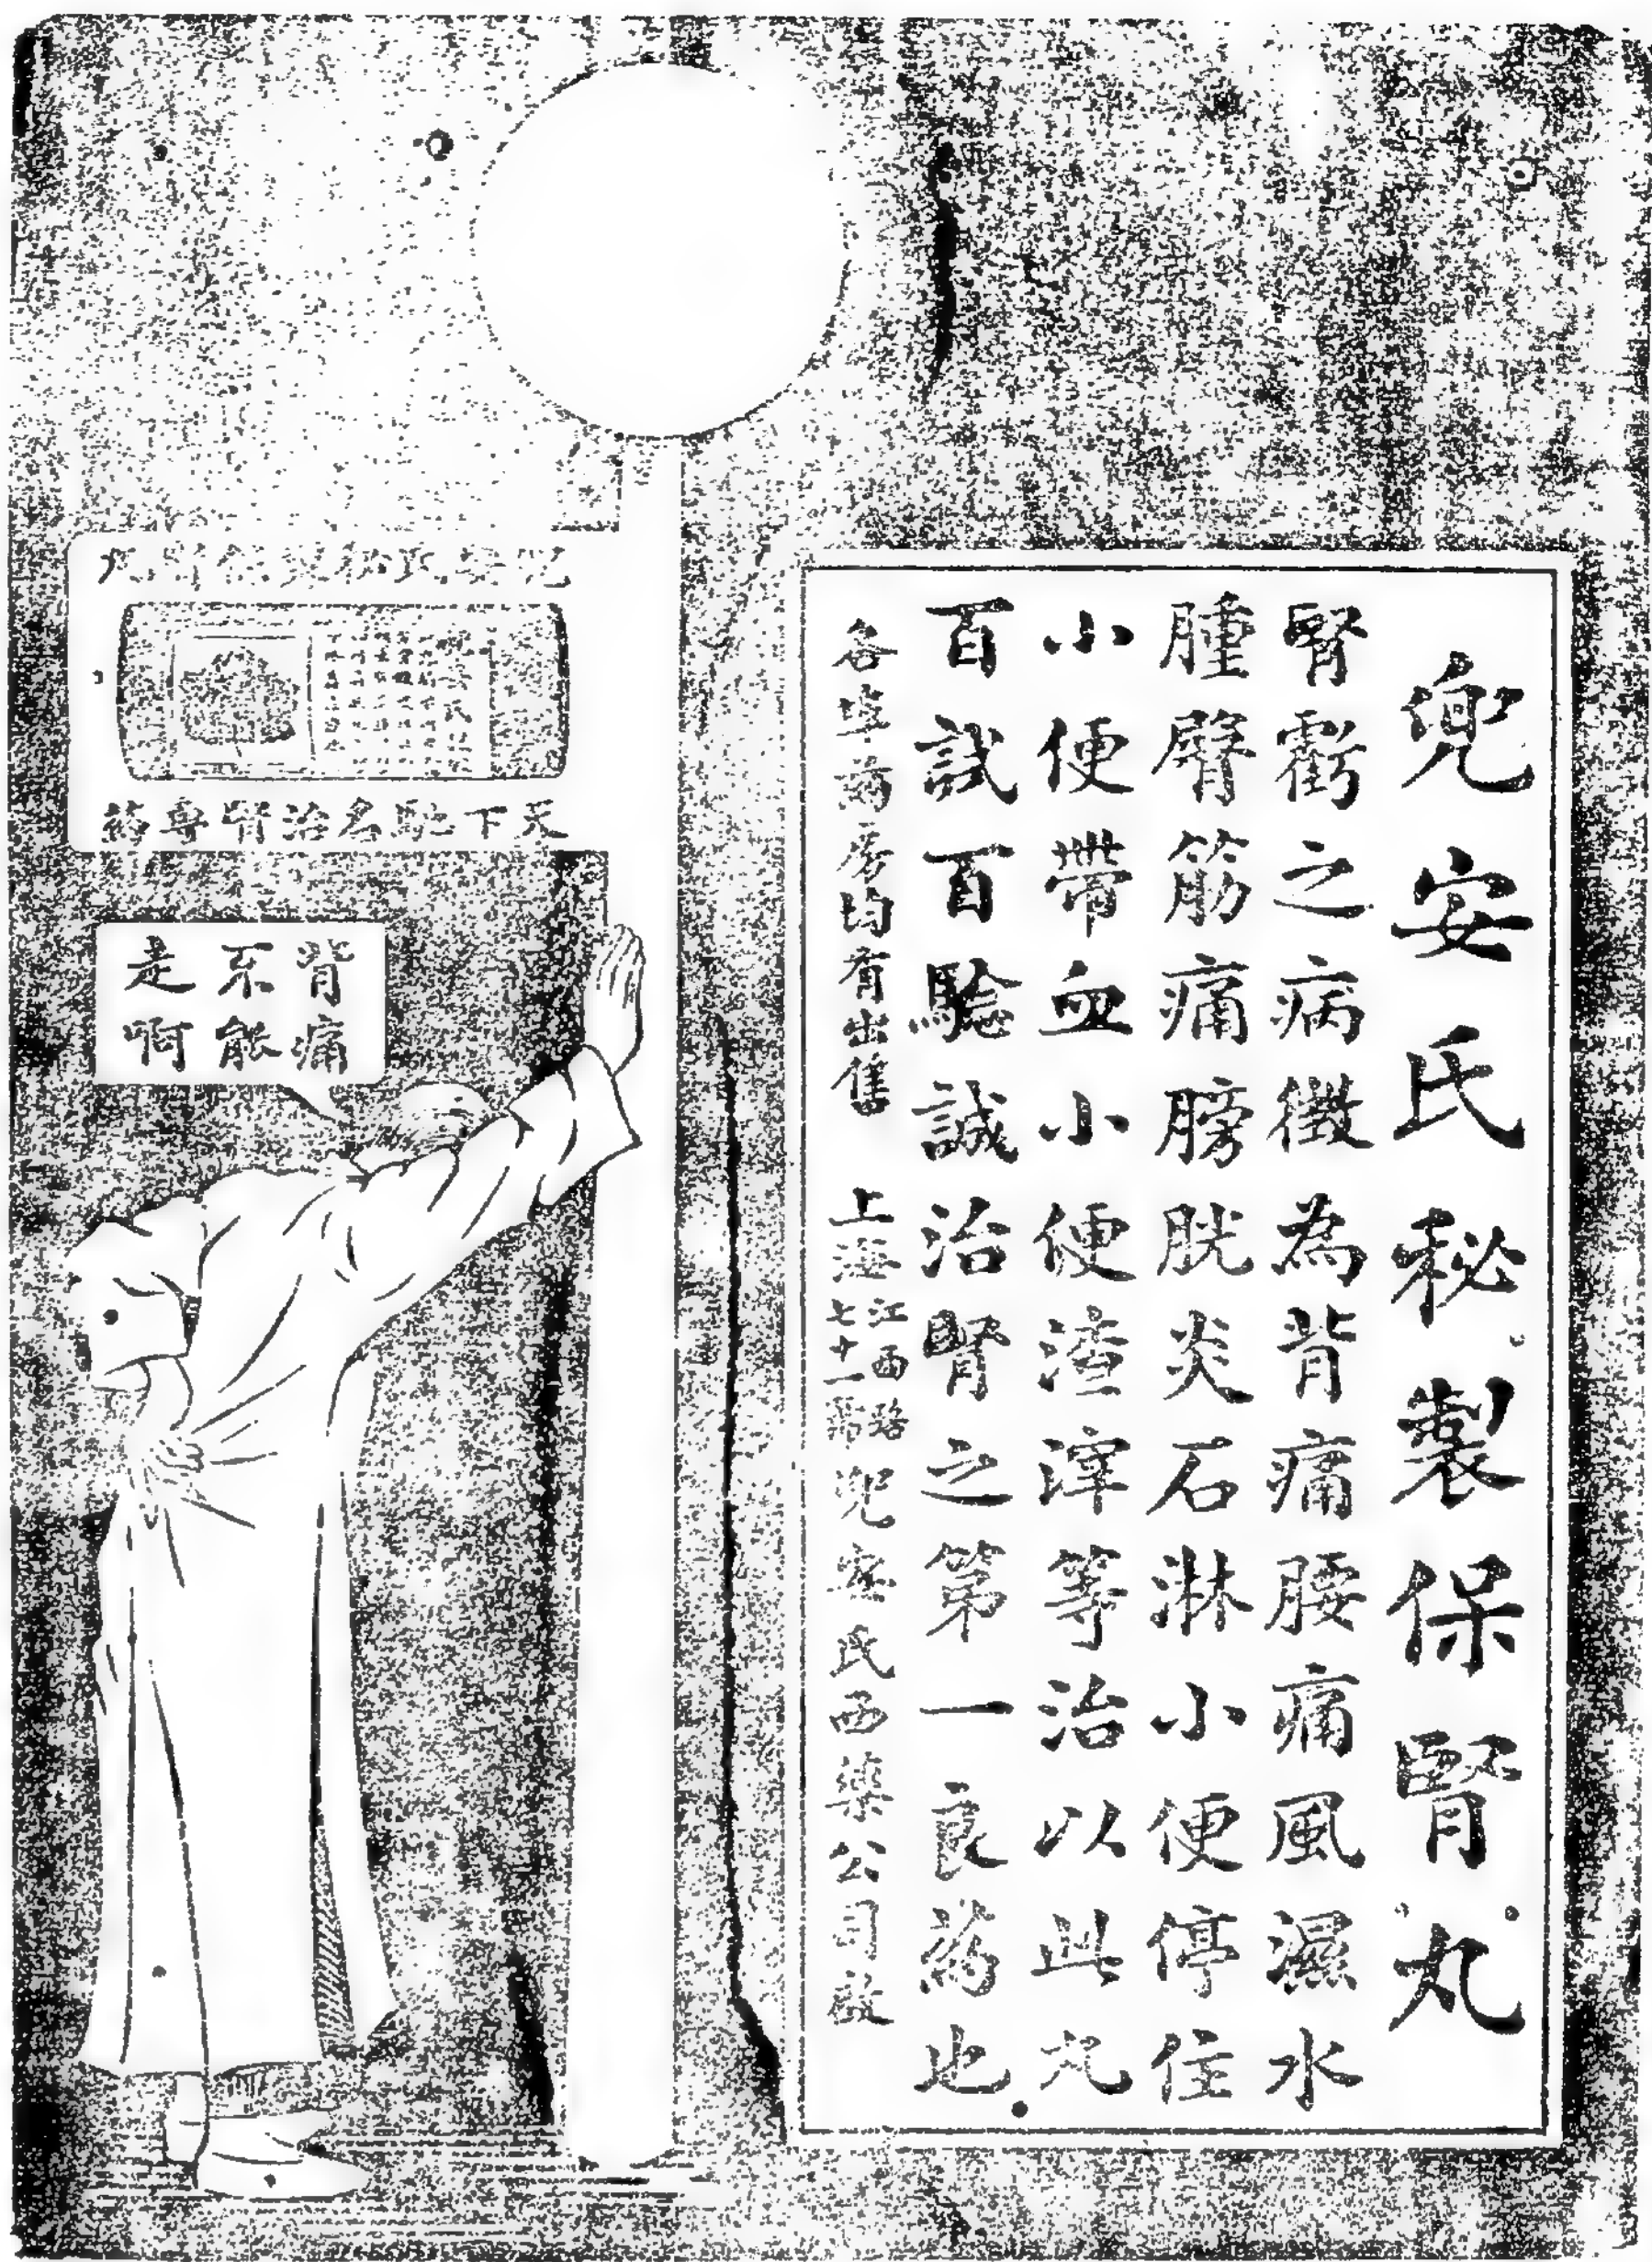 兜安氏秘製保腎丸
腎虧之病徵為背痛腰痛風濕水
腫臂筋痛膀胱炎石淋小便停住
小便帶血小便渣滓等治以此丸
百試百騐誠治腎之第一良葯也
各埠葯房均有出售 上海江西路七十一號兜安氏西藥公司啟
兜安氏秘製保腎丸
天下馳名治腎專葯
背痛
不能
走啊